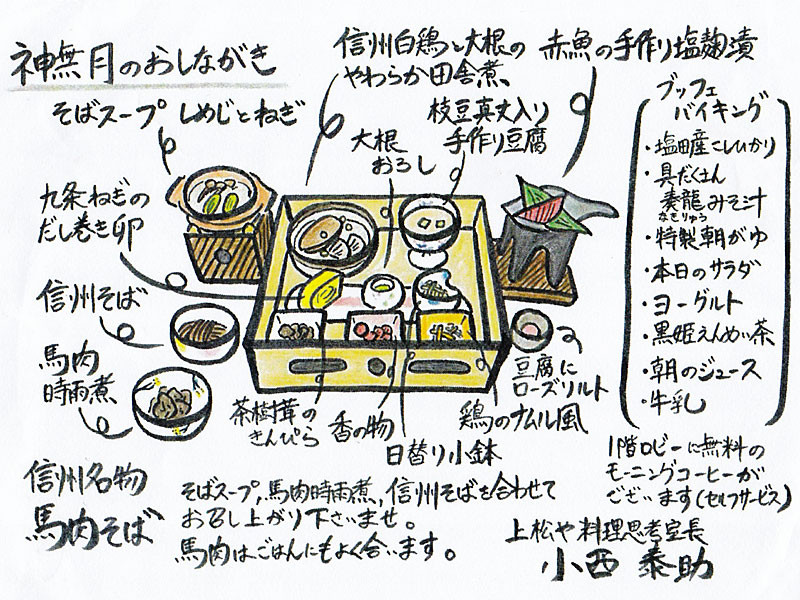 神無月のおしながき
信州白鶏と大根の
やわらか田舎煮
赤魚の手作り塩麹漬
そばスープ しめじとねぎ
大根
おろし
枝豆真丈入り
手作り豆腐
九条ねぎの
だし巻き卵
信州そば
馬肉
時雨煮
茶樹茸の
きんぴら
香の物
日替り小鉢
鶏のナムル風
豆腐に
ローズソルト
ブッフェ
バイキング
・塩田産こしひかり
・具だくさん
みそ汁
・特製朝がゆ
・本日のサラダ
・ヨーグルト
・黒姫えんめい茶
・朝のジュース
・牛乳
1階ロビーに無料の
モーニングコーヒーが
ございます(セルフサービス)
信州名物
馬肉そば
そばスープ,馬肉時雨煮,信州そばを合わせて
お召し上がり下さいませ。
馬肉はごはんにもよく合います。
上松や料理思考室長
小西 泰助